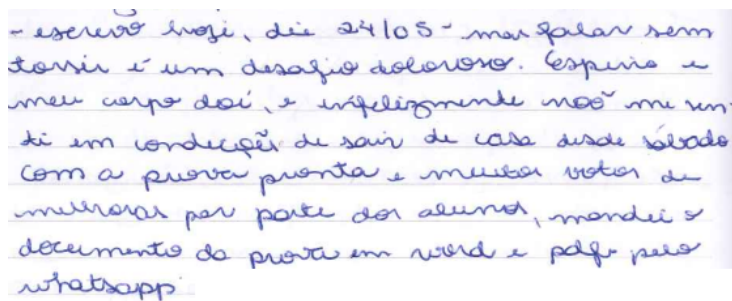 - escrevo hoje, dia 24/05 - mas falar sem
tossir é um desafio doloroso. Espirro e
meu corpo doí, e infelizmente não me sen-
ti em condições de sair de casa desde sábado
Com a prova pronta e muitos votos de
melhoras por parte dos alunos, mandei o
documento da prova em word e pdf pelo
whatsapp